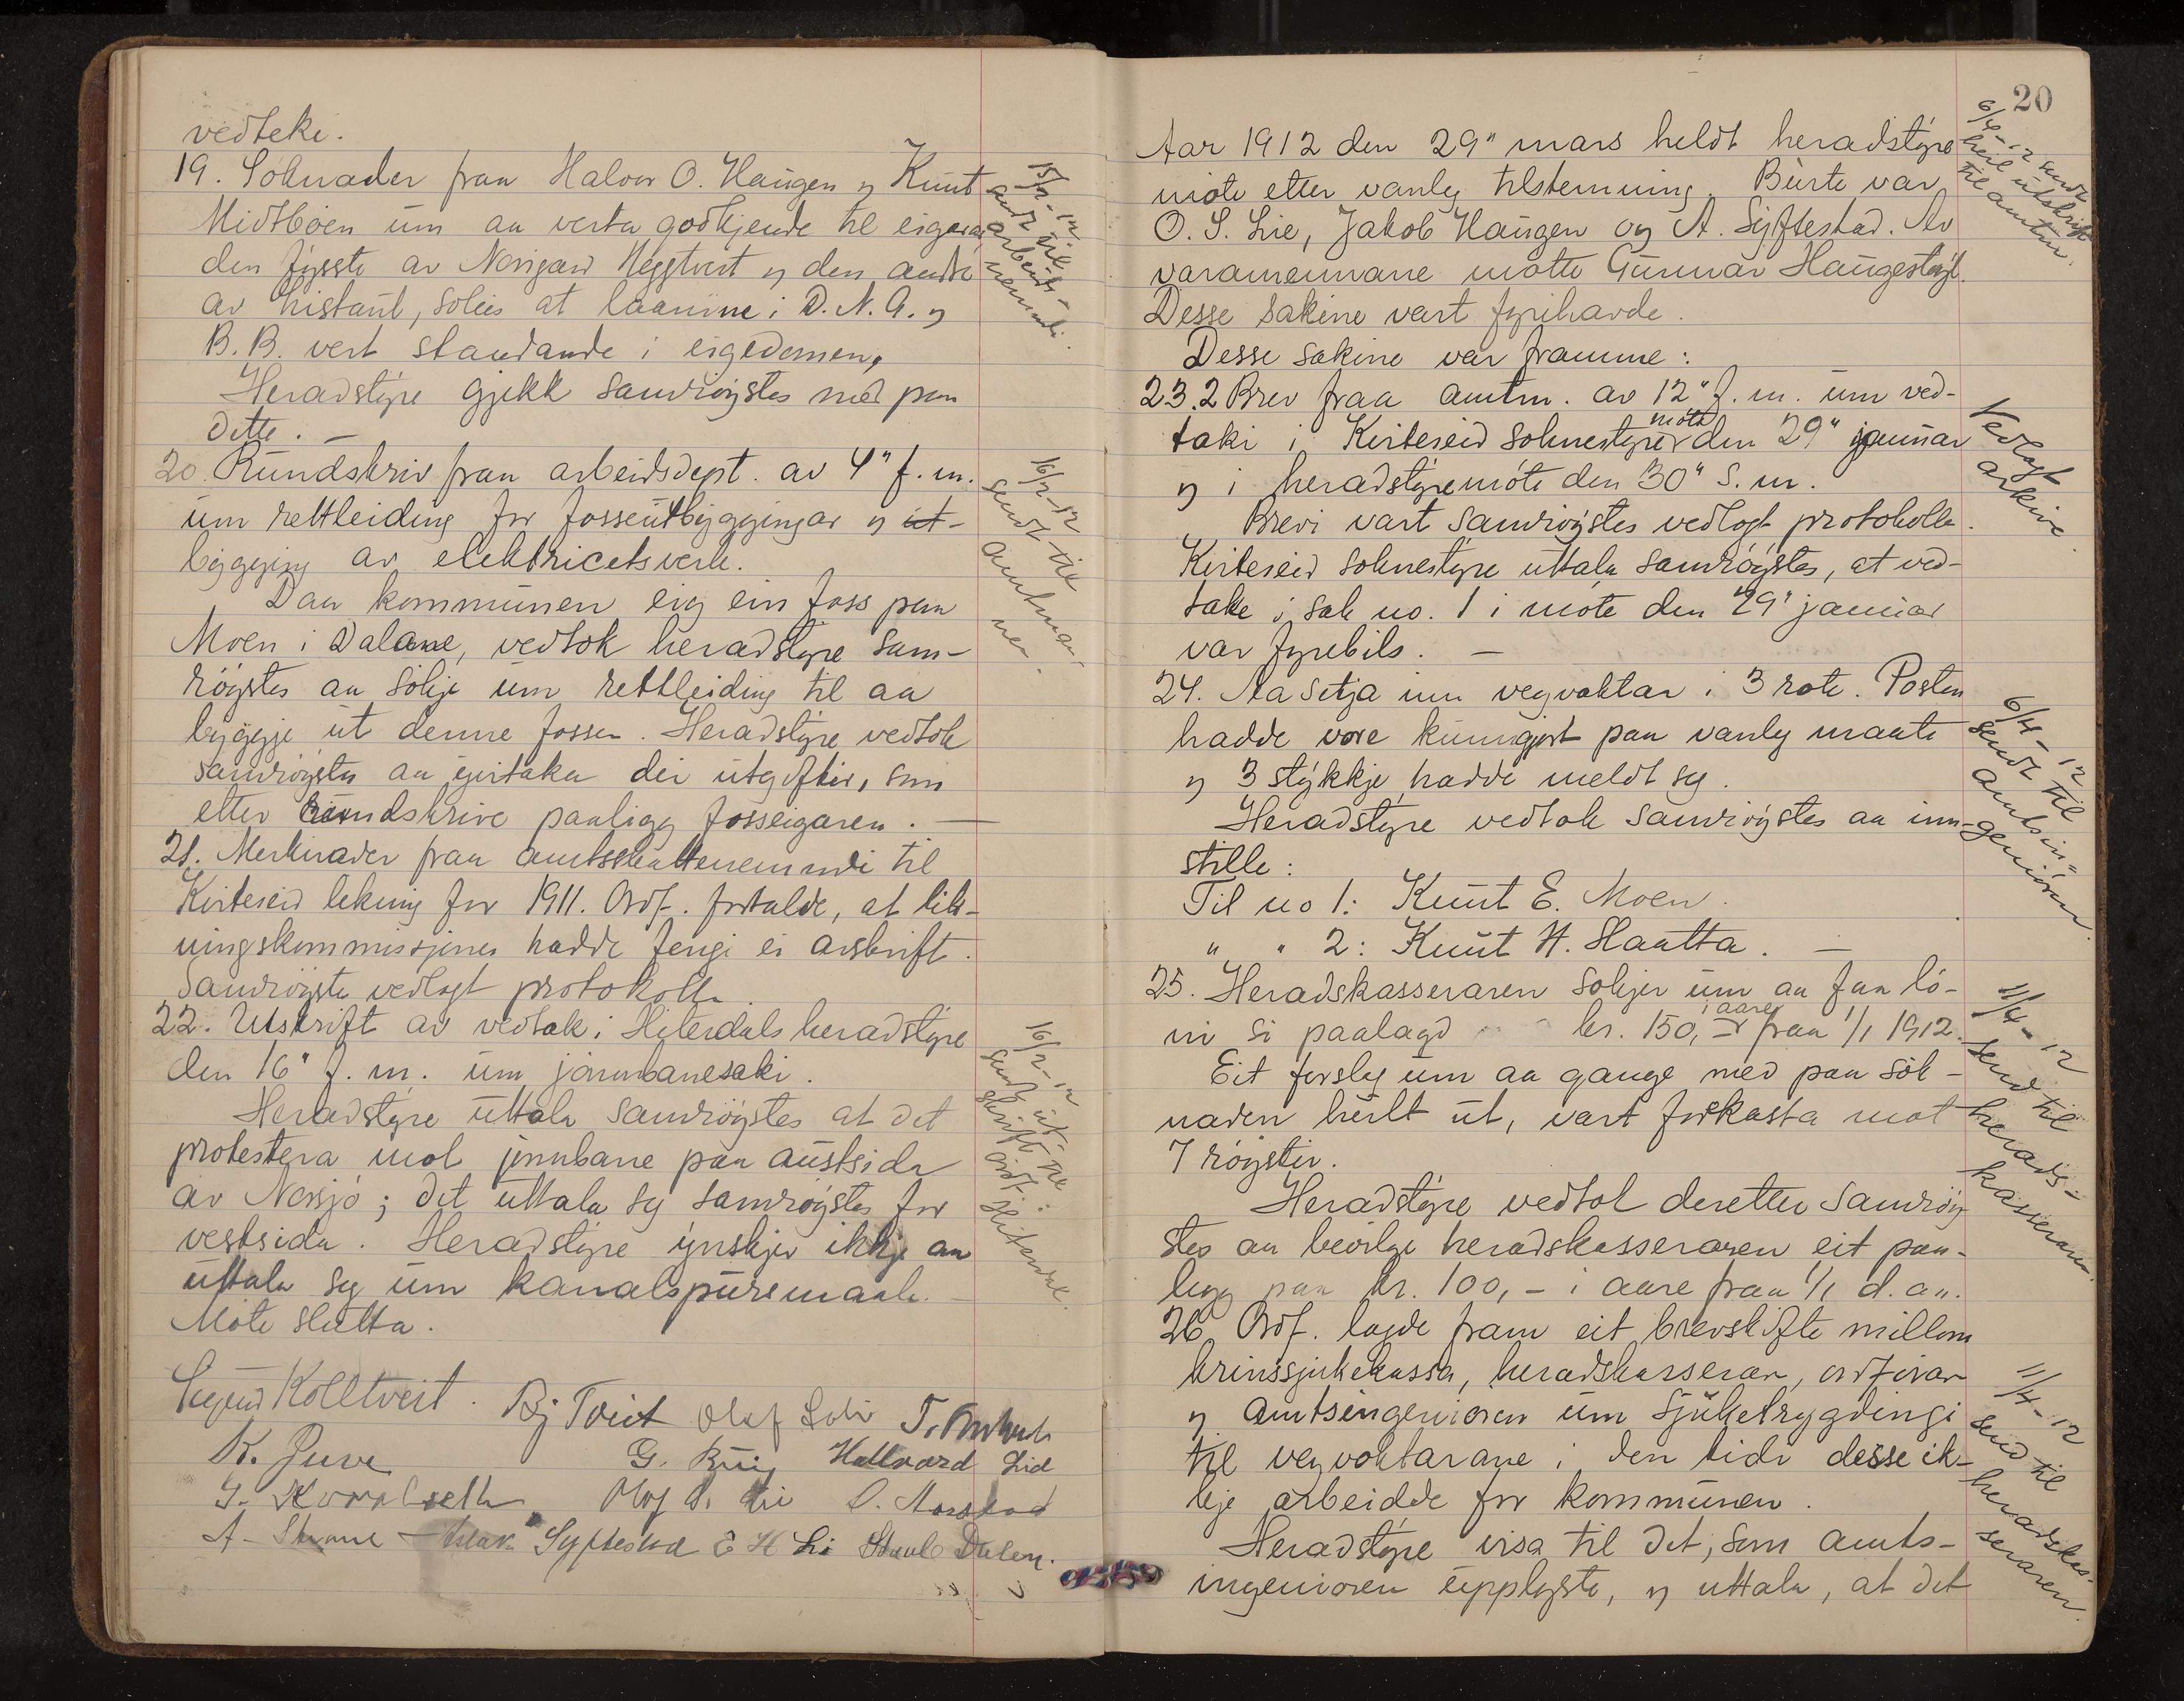 vedteki.
19. Söknader fraa Halvor O. Haugen og Knut
Midtböen um aa verta godkjende til eigarar
den fyrste av Norigard Heggtveit og den andre
av Kistaul, soleis at laanine i D. N. A. og
B. B. vert standande i eigedomen,
Heradstyre gjekk samröystes med paa
dette. —
15/2-12
sendt til
arbeids-
nemndi.
20. Rundskriv fraa arbeidsdept. av 4" f. m.
um rettleiding for fosseutbyggjingar og ut-
byggjing av elektricetsverk.
Daa kommunen eig ein foss paa
Moen i Dalane, vedtok heradstyre sam-
röystes aa sökje um rettleiding til aa
byggje ut denne fossen. Heradstyre vedtok
samröystes aa yvirtaka dei utgiftir, som
etter rundskrive paaligg fosseigaren. —
16/2-12
sendt til
amtman-
nen.
21. Merknader fraa amtsskattenemndi til
Kviteseid likning for 1911. Ordf. fortalde, at lik-
ningskommissjonen hadde fengi ei avskrift.
Samröystes vedlagt protokollen.
22. Utskrift av vedtak i Hiterdals heradstyre
den 16" f. m. um jarnbanesaki.
Heradstyre uttala samröystes at det
protestera mot jarnbane paa austsida
av Norsjö; det uttala seg samröystes for
vestsida. Heradstyre ynskjer ikkje aa
uttala seg um kanalspursmaale. —
Möte slutta.
16/2-12
sendt ut-
skrift til
ordf. i Hiterdal.
Sigurd Kolltveit. Bj Tveit Olaf Lid
K. Juve G. Hallvard Lid
Olaf S. Lie O. Aarskod
A. Strand Aslak Syftestad E H Li Staule Dalen.
20
Aar 1912 den 29" mars heldt heradstyre
möte etter vanleg tilstemning. Burte var
O. S. Lie, Jakob Haugen og A. Syftestad. Av
varamennane mötte Gunnar Haugestøyl.
Desse sakine vart fyrihavde.
6/4-12 sendt
heil utskrift
til amtm.
Desse sakine var framme:
23. 2 Brev fraa amtm. av 12" f. m. um ved-
taki i Kviteseid soknestyre möte den 29" januar
og i heradstyremöte den 30" s. m.
Brevi vart samröystes vedlagt protokollen.
Kviteseid soknestyre uttala samröystes, at ved-
take i sak no. 1 i möte den 29" januar
var fyrebils. —
Vedlagt
arkive.
24. Aa setja inn vegvaktar i 3 rote. Posten
hadde vore kunngjort paa vanleg maate
og 3 stykkje hadde meldt seg.
Heradstyre vedtok samröystes aa inn-
stille:
Til no 1: Knut E. Moen.
" " 2: Knut H. Haatta. —
6/4-12
sendt til
amtsin-
geniören.
25. Heradskasseraren sökjer um aa faa lö-
ni si paalagd kr. 150,- i aare fraa 1/1 1912.
Eit forslag um aa gange med paa sök-
naden heilt ut, vart forkasta mot
7 röyster.
Heradstyre vedtok deretter samröy-
stes aa bevilge heradskasseraren eit paa-
legg paa kr. 100,- i aare fraa 1/1 d. a.
11/4-12
send til
herads-
kasseraren.
26. Ordf. lagde fram eit brevskifte millom
krinssjukekassa, heradskasserar, ordförar
og amtsingeniören um sjuketrygdingi
til vegvaktarane i den tidi desse ik-
kje arbeidde for kommunen.
Heradstyre visa til det, som amts-
ingeniören upplyste, og uttala, at det
11/4-12
send til
heradskas-
seraren.